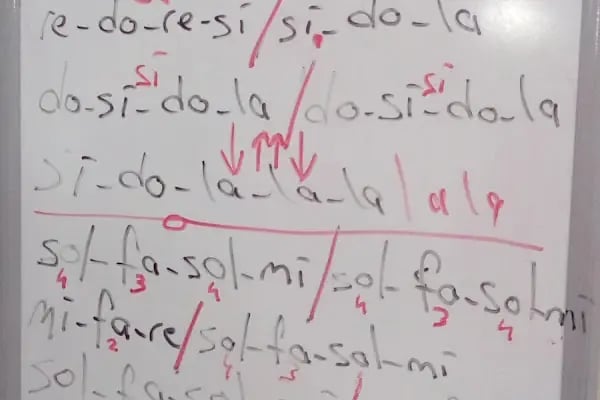 re-do-re-si / si-do-la
si si
do-si-do-la / do-si-do-la
si-do-la-la-la | a la
sol-fa-sol-mi / sol-fa-sol-mi
4 3 4 4 3 4
mi-fa-re / sol-fa-sol-mi
2
sol-fa-sol